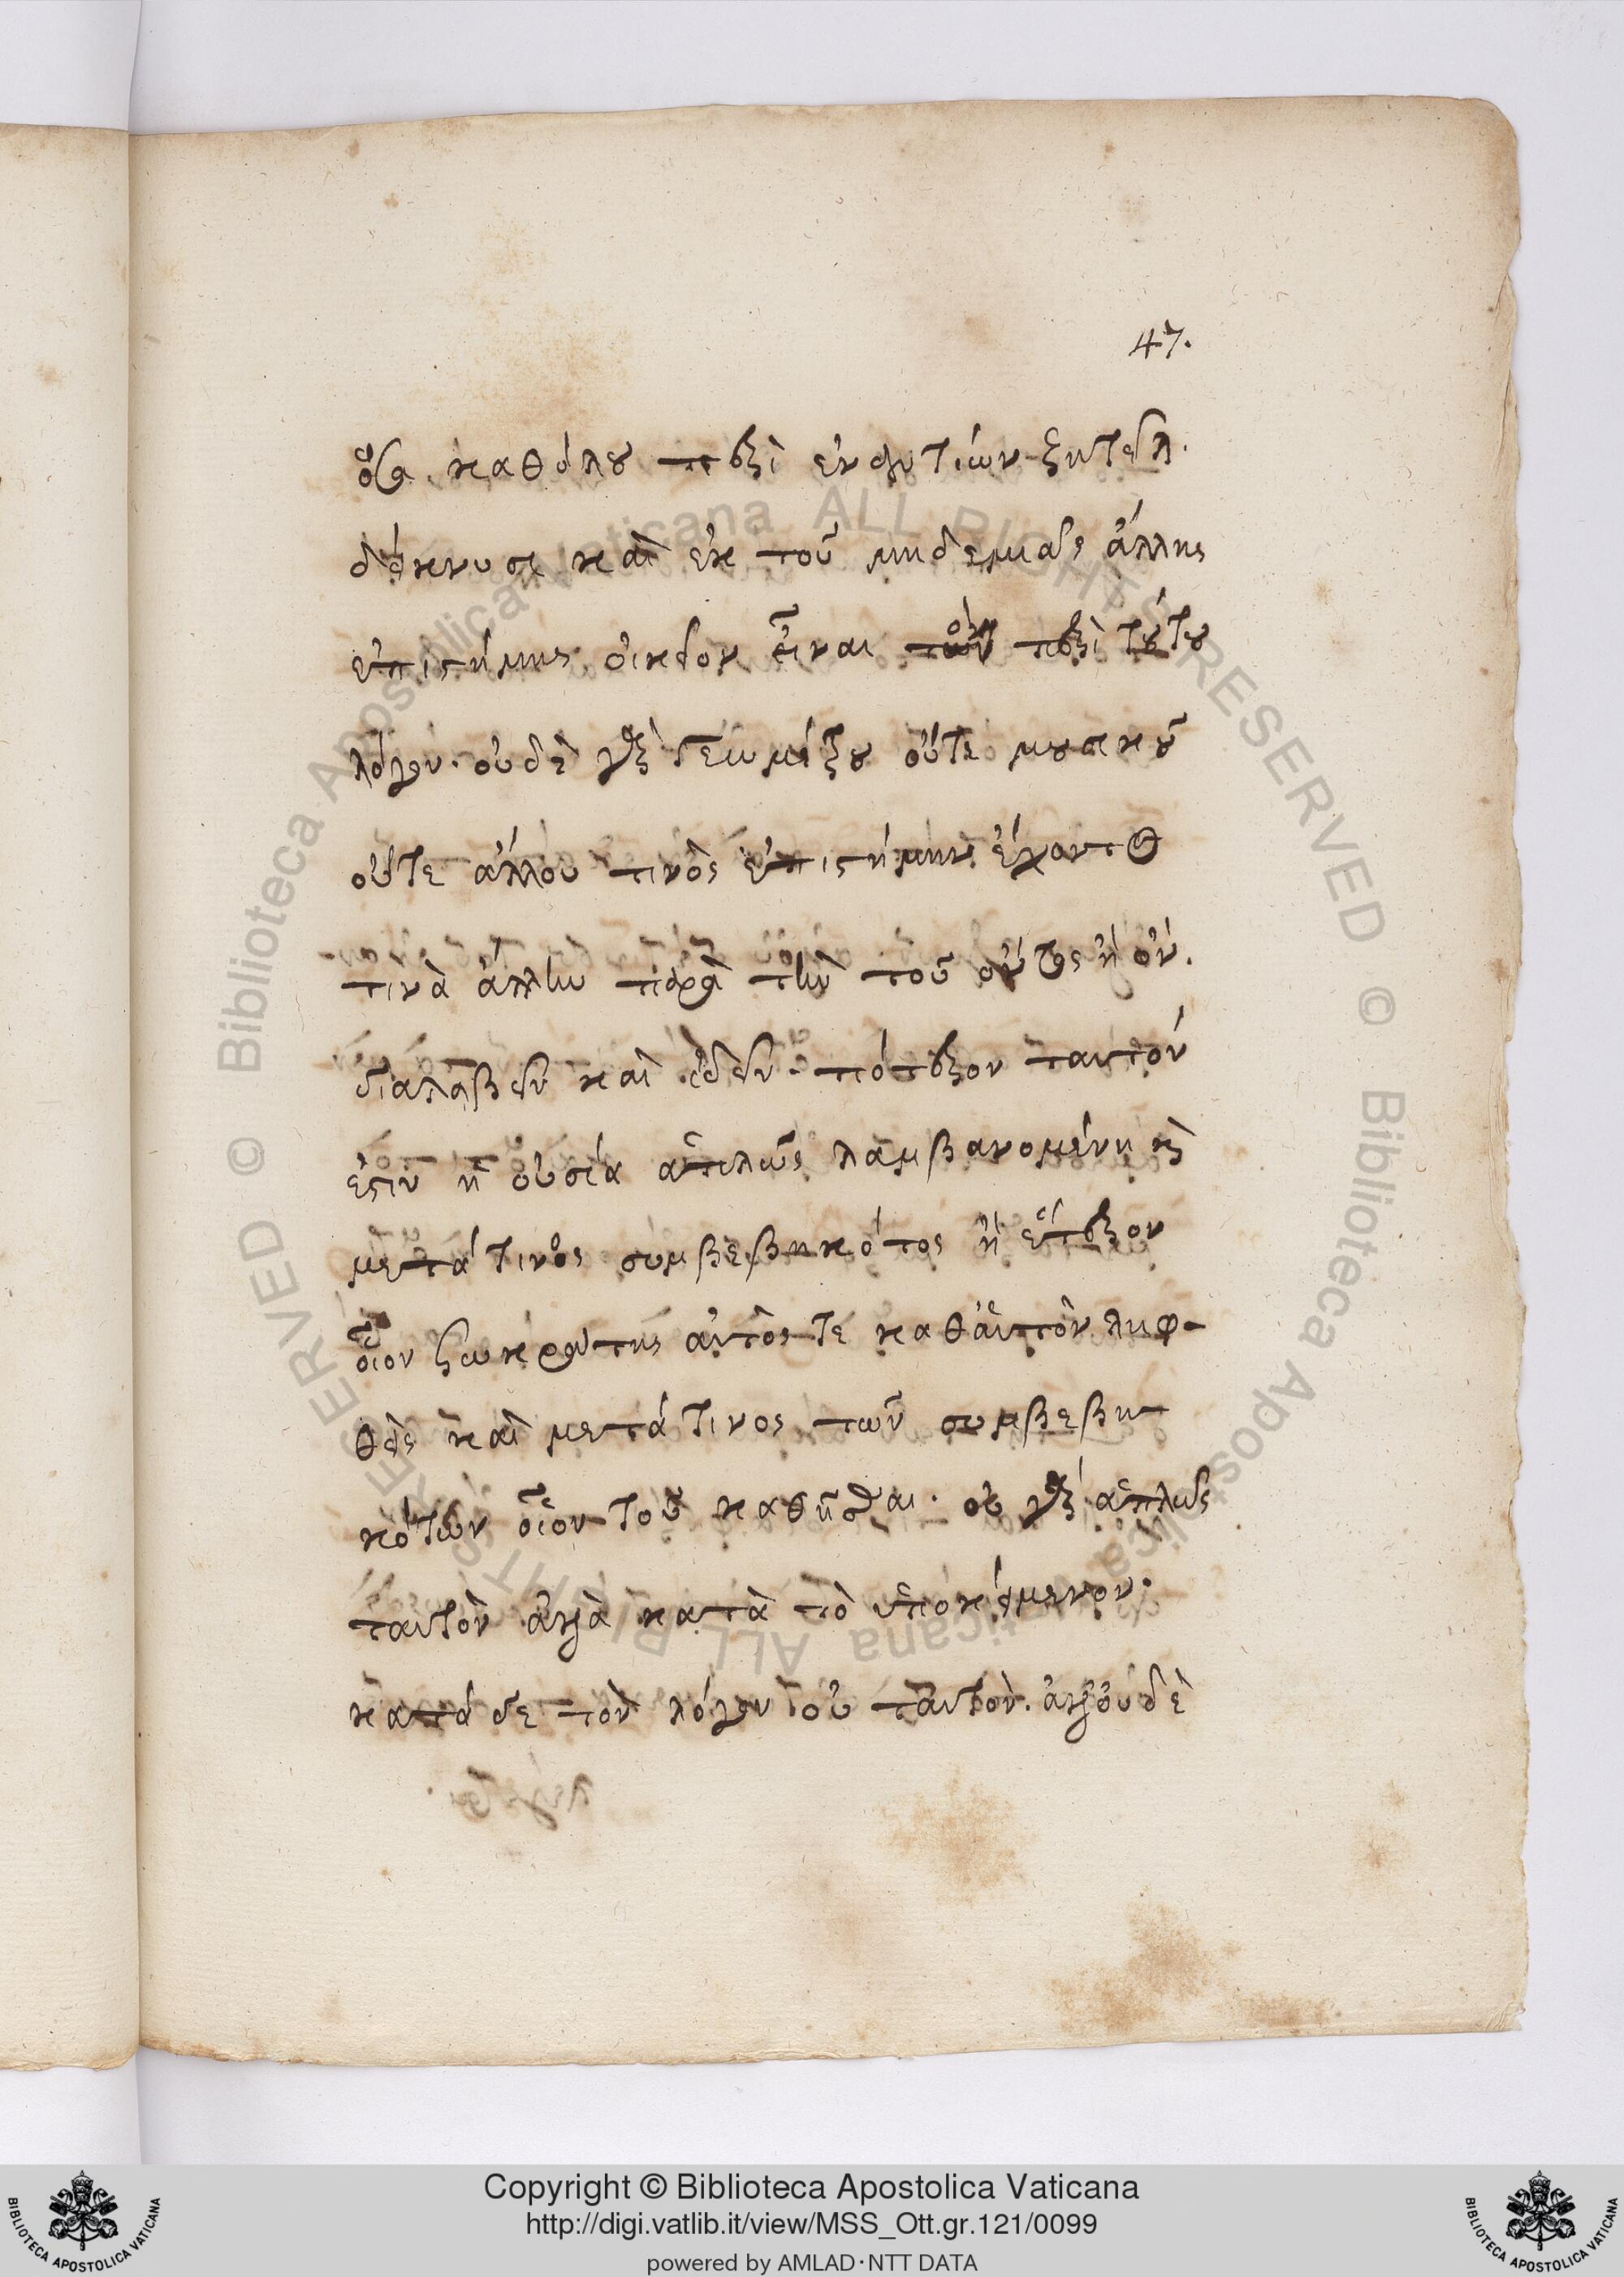 47.
ὅσα καθόλου περὶ ἐναντίων ζητεῖται.
δείκνυσι καὶ ἐκ τοῦ μηδεμιᾶς ἄλλης
ἐπιστήμης οἰκεῖον εἶναι τὸν περὶ τούτου
λόγον. οὐδὲ γὰρ γεωμέτρου οὔτε μουσικοῦ
οὔτε ἄλλου τινὸς ἐπιστήμην ἔχοντος
τινὰ ἄλλην παρὰ τὴν τοῦ ὄντος ᾗ ὄν.
διαλαβεῖν καὶ ἰδεῖν. πότερον ταυτόν
ἐστιν ἡ οὐσία ἁπλῶς λαμβανομένη καὶ
μετά τινος συμβεβηκότος ἢ ἕτερον
οἷον Σωκράτης αὐτός τε καθ' αὑτὸν ληφ-
θεὶς καὶ μετά τινος τῶν συμβεβη-
κότων οἷον τοῦ καθῆσθαι. οὐ γὰρ ἁπλῶς
ταυτὸν ἀλλὰ κατὰ τὸ ὑποκείμενον.
κατὰ δὲ τὸν λόγον οὐ ταυτόν. ἀλλ' οὐδὲ
Copyright © Biblioteca Apostolica Vaticana
http://digi.vatlib.it/view/MSS_Ott.gr.121/0099
powered by AMLAD·NTT DATA
BIBLIOTECA APOSTOLICA VATICANA
BIBLIOTECA APOSTOLICA VATICANA